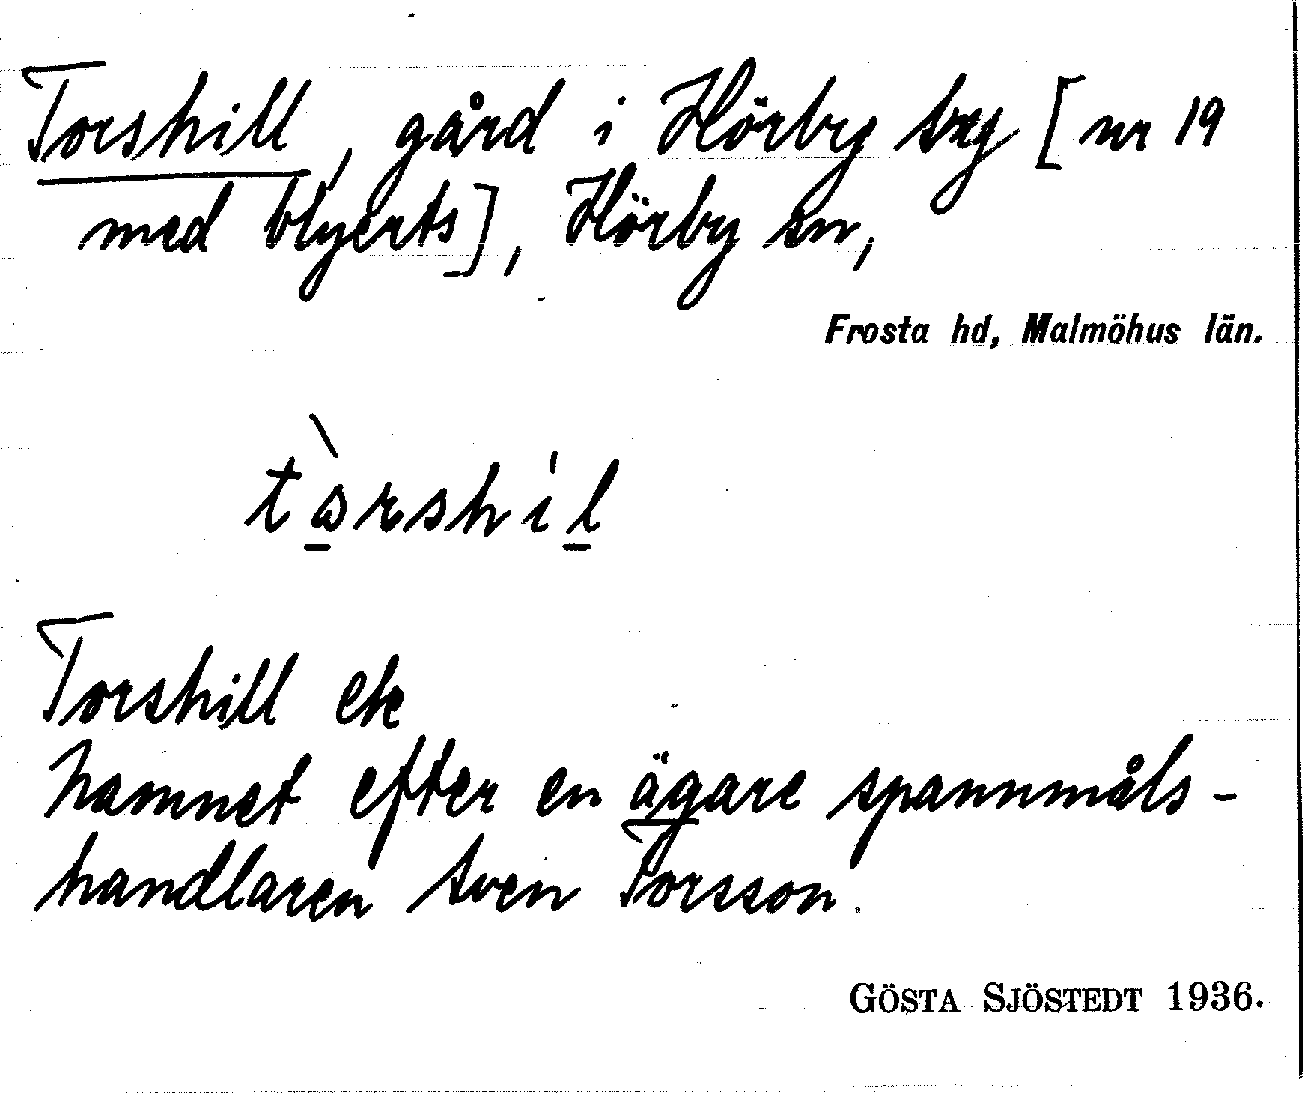 Torshill, gård i Hörby by [nr 19
med blyerts], Hörby sn,
Frosta hd, Malmöhus län.
Torshill ek
Namnet efter en ägare spannmåls-
handlaren Sven Torsson.
GÖSTA SJÖSTEDT 1936.